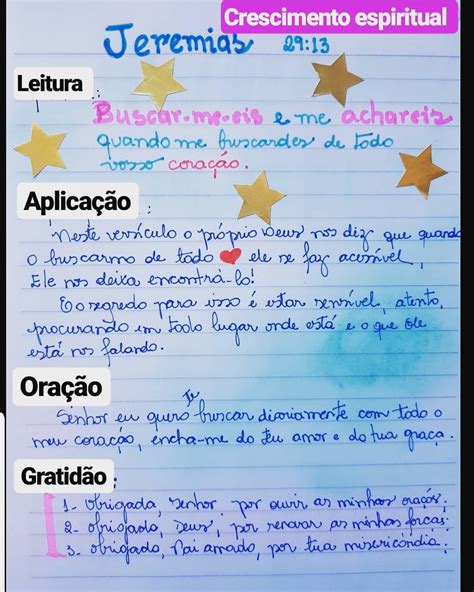 Crescimento espiritual
Jeremias 29:13
Leitura
Buscar-me-eis e me achareis
quando me buscardes de todo
vosso coração.
Aplicação
Neste versículo o próprio Deus nos diz que quando
o buscarmo de todo ❤ ele se faz acessível,
Ele nos deixa encontrá-lo!
E o segredo para isso é estar sensível, atento,
procurando em todo lugar onde está e o que Ele
está nos falando.
Oração
Senhor eu quero Te buscar diariamente com todo o
meu coração, encha-me do teu amor e da tua graça.
Gratidão
1- obrigada, Senhor, por ouvir as minhas orações.
2- obrigado, Deus, por renovar as minhas forças.
3- obrigado, Pai amado, por tua misericórdia.